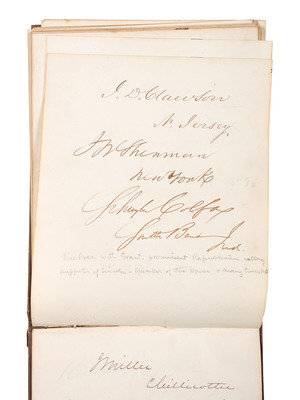 I. D. Clawson
N. Jersey
J W Sherman
New York
Schuyler Colfax
South Bend Ind.
Vice Pres with Grant. prominent Republican
supporter of Lincoln - Speaker of the House
Miller
Chillicothe